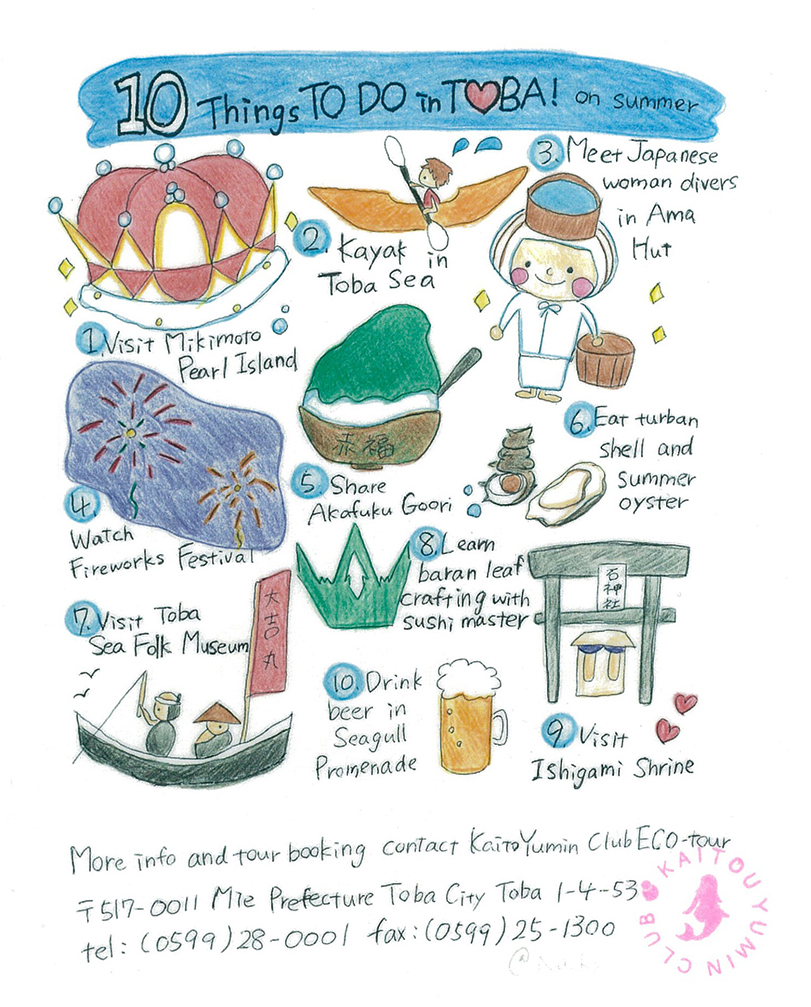 10 Things TO DO in T♥BA! on summer
1. Visit Mikimoto
Pearl Island
2. Kayak in
Toba Sea
3. Meet Japanese
woman divers
in Ama
Hut
4. Watch
Fireworks Festival
赤福
5. Share
Akafuku Goori
6. Eat turban
shell and
summer
oyster
7. Visit Toba
Sea Folk Museum
大吉丸
8. Learn
baran leaf
crafting with
sushi master
石神社
9. Visit
Ishigami Shrine
10. Drink
beer in
Seagull
Promenade
More info and tour booking contact Kaito Yumin Club ECO-tour
〒517-0011 Mie Prefecture Toba City Toba 1-4-53
tel: (0599)28-0001 fax: (0599)25-1300
KAITOU YUMIN CLUB